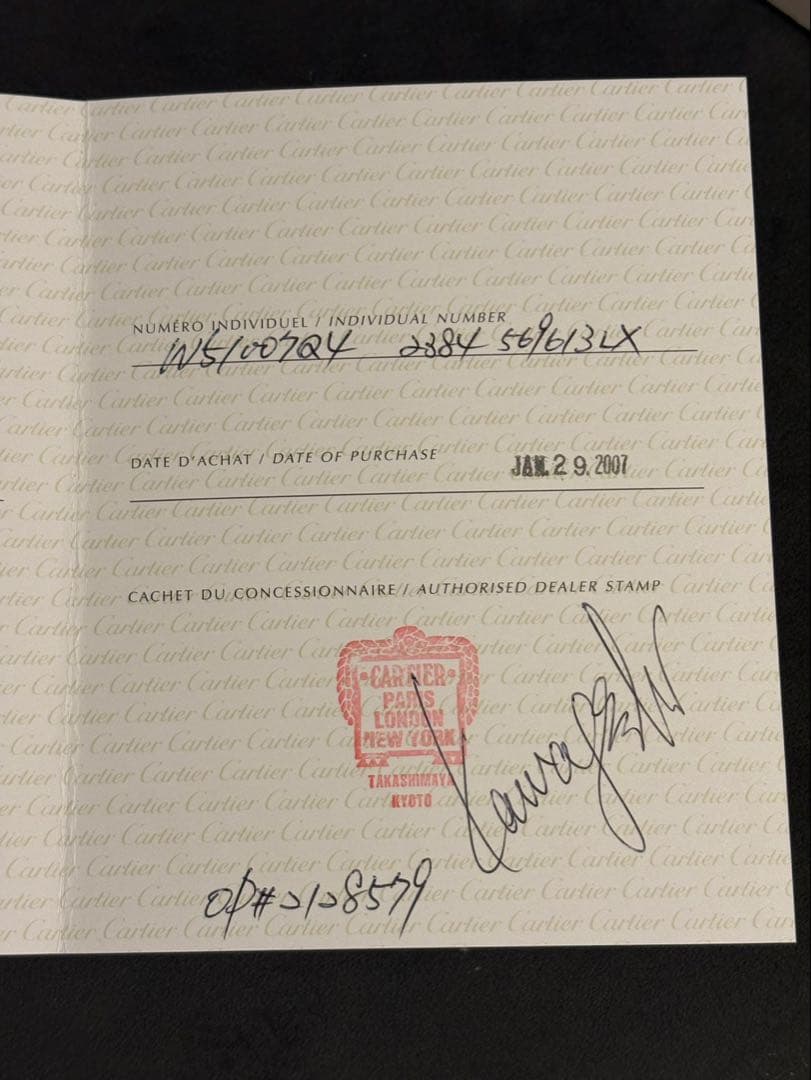 NUMÉRO INDIVIDUEL / INDIVIDUAL NUMBER
W51007Q4 2384 569613LX
DATE D'ACHAT / DATE OF PURCHASE
JAN. 29. 2007
CACHET DU CONCESSIONNAIRE / AUTHORISED DEALER STAMP
CARTIER
PARIS
LONDON
NEW YORK
TAKASHIMAYA
KYOTO
OP#2108579